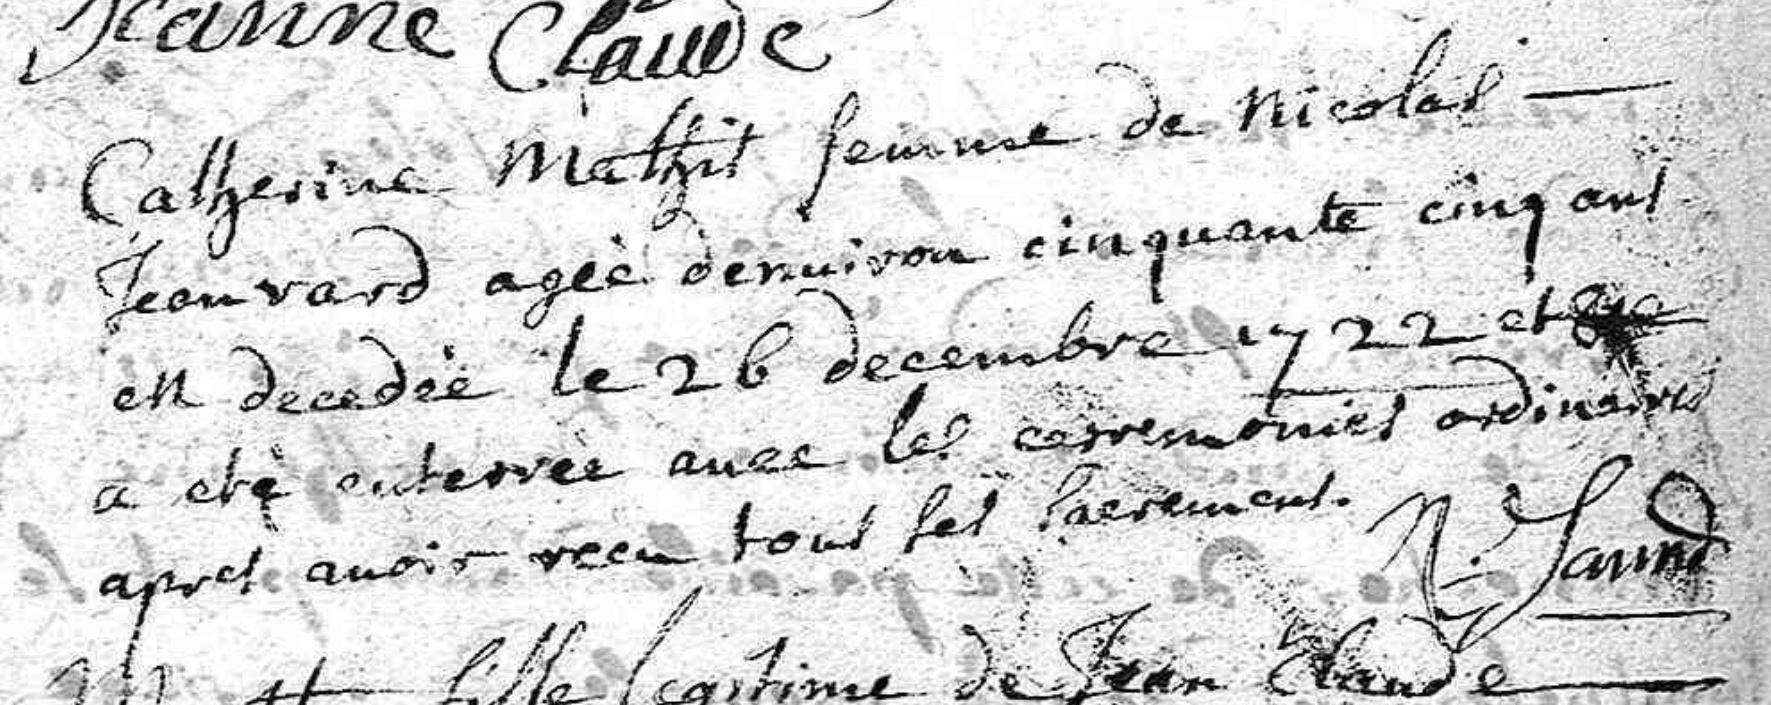 Jeanne Claude
Catherine Mathit femme de Nicolas
Jeanvard ageè denuiron cinquante cinq ans
est decedèe le 26 decembre 1722 et
a etè enterrèe auec les ceremonies ordinaires
apres auoir recu tous ses sacrements.
fille legitime de Jean Claude